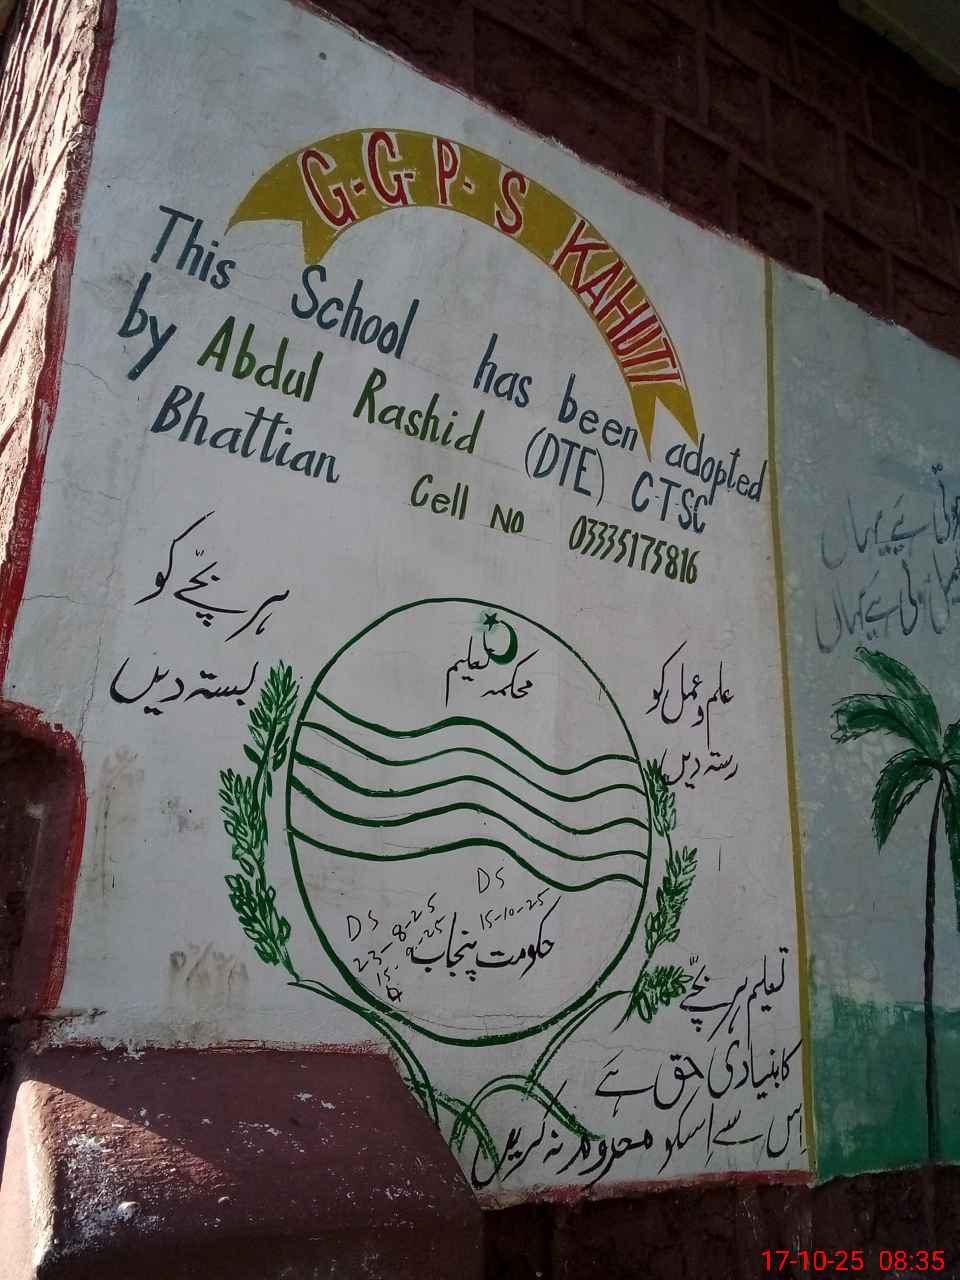 G-G-P-S KAHUTI
This School has been adopted
by Abdul Rashid (DTE) C-T-SC
Bhattian Cell No 03335175816
ہر بچّے کو
بستہ دیں
علم و عمل کو
رستہ دیں
محکمہ تعلیم
DS
15-10-25
DS
23-8-25
15-9-25
حکومت پنجاب
تعلیم ہر بچّے
کا بنیادی حق ہے
اِس سے اِسکو محروم نہ کریں
ہے یہاں
ہے یہاں
17-10-25 08:35